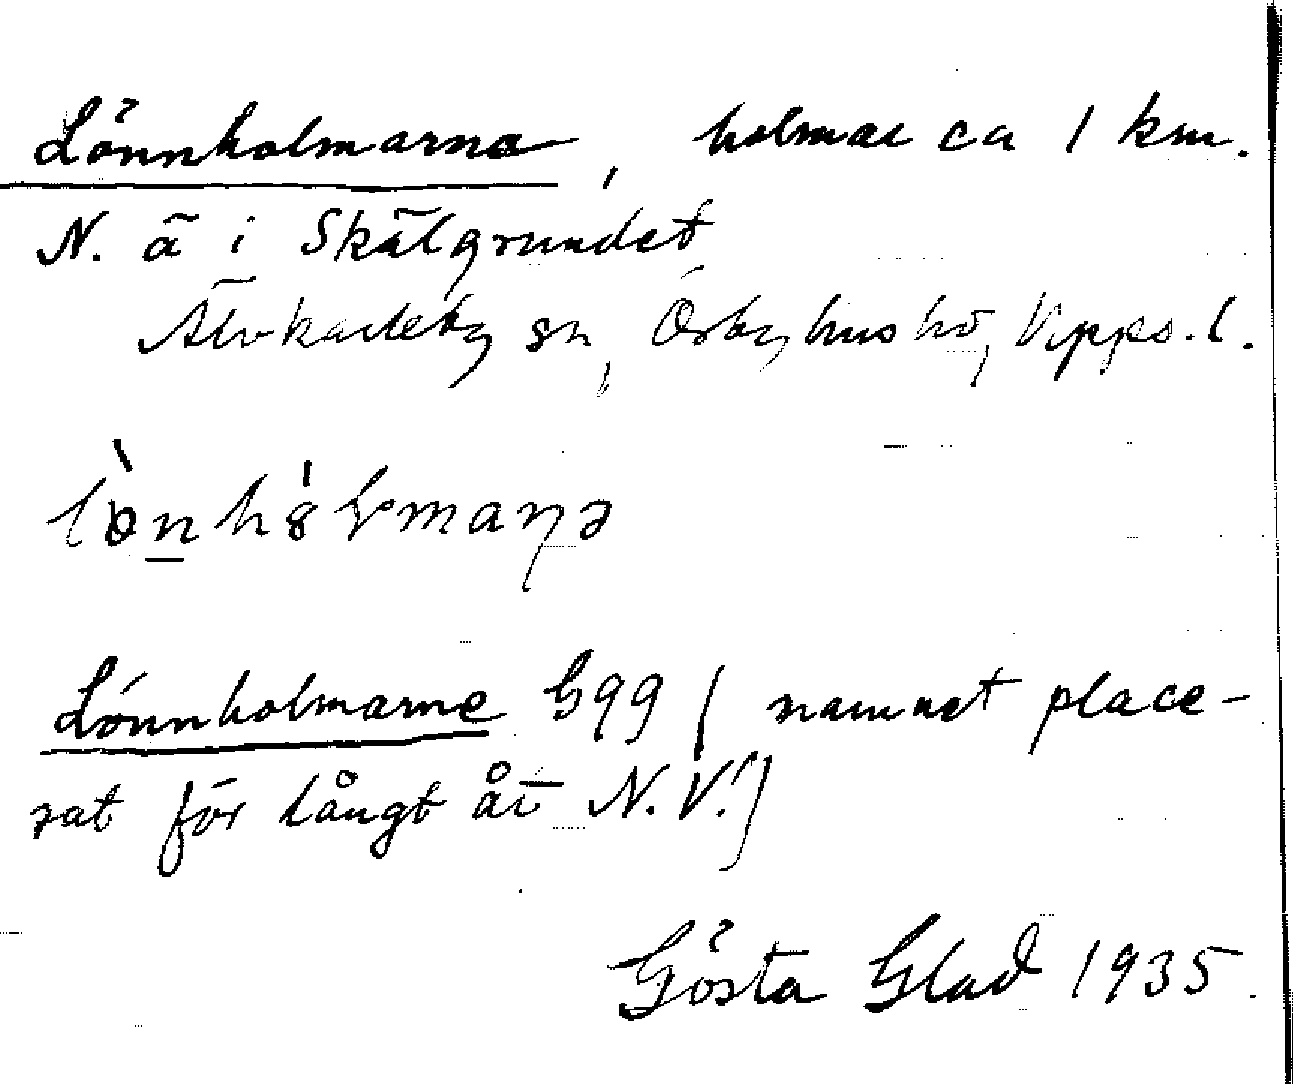 Lönnholmarna, holmar ca 1 km.
N. ä i Skälgrundet,
Älvkarleby sn, Örbyhus hd, Upps. l.
lònhòlmaṇə
Lönnholmarne G99 (namnet place-
rat för långt åt N.V.)
Gösta Glad 1935.